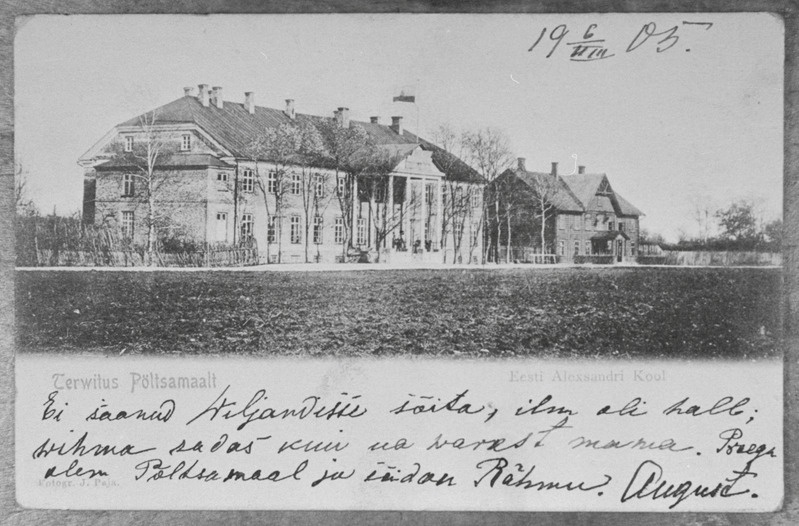 19 6/VIII 05.
Terwitus Põltsamaalt
Eesti Alexsandri Kool
Ei saanud Wiljandisse sõita, ilm oli halb;
wihma sadas kui ua warest mama. Praega
olem Põltsamaal ja sõidan Rõhmu. August.
Fotogr. J. Paja.